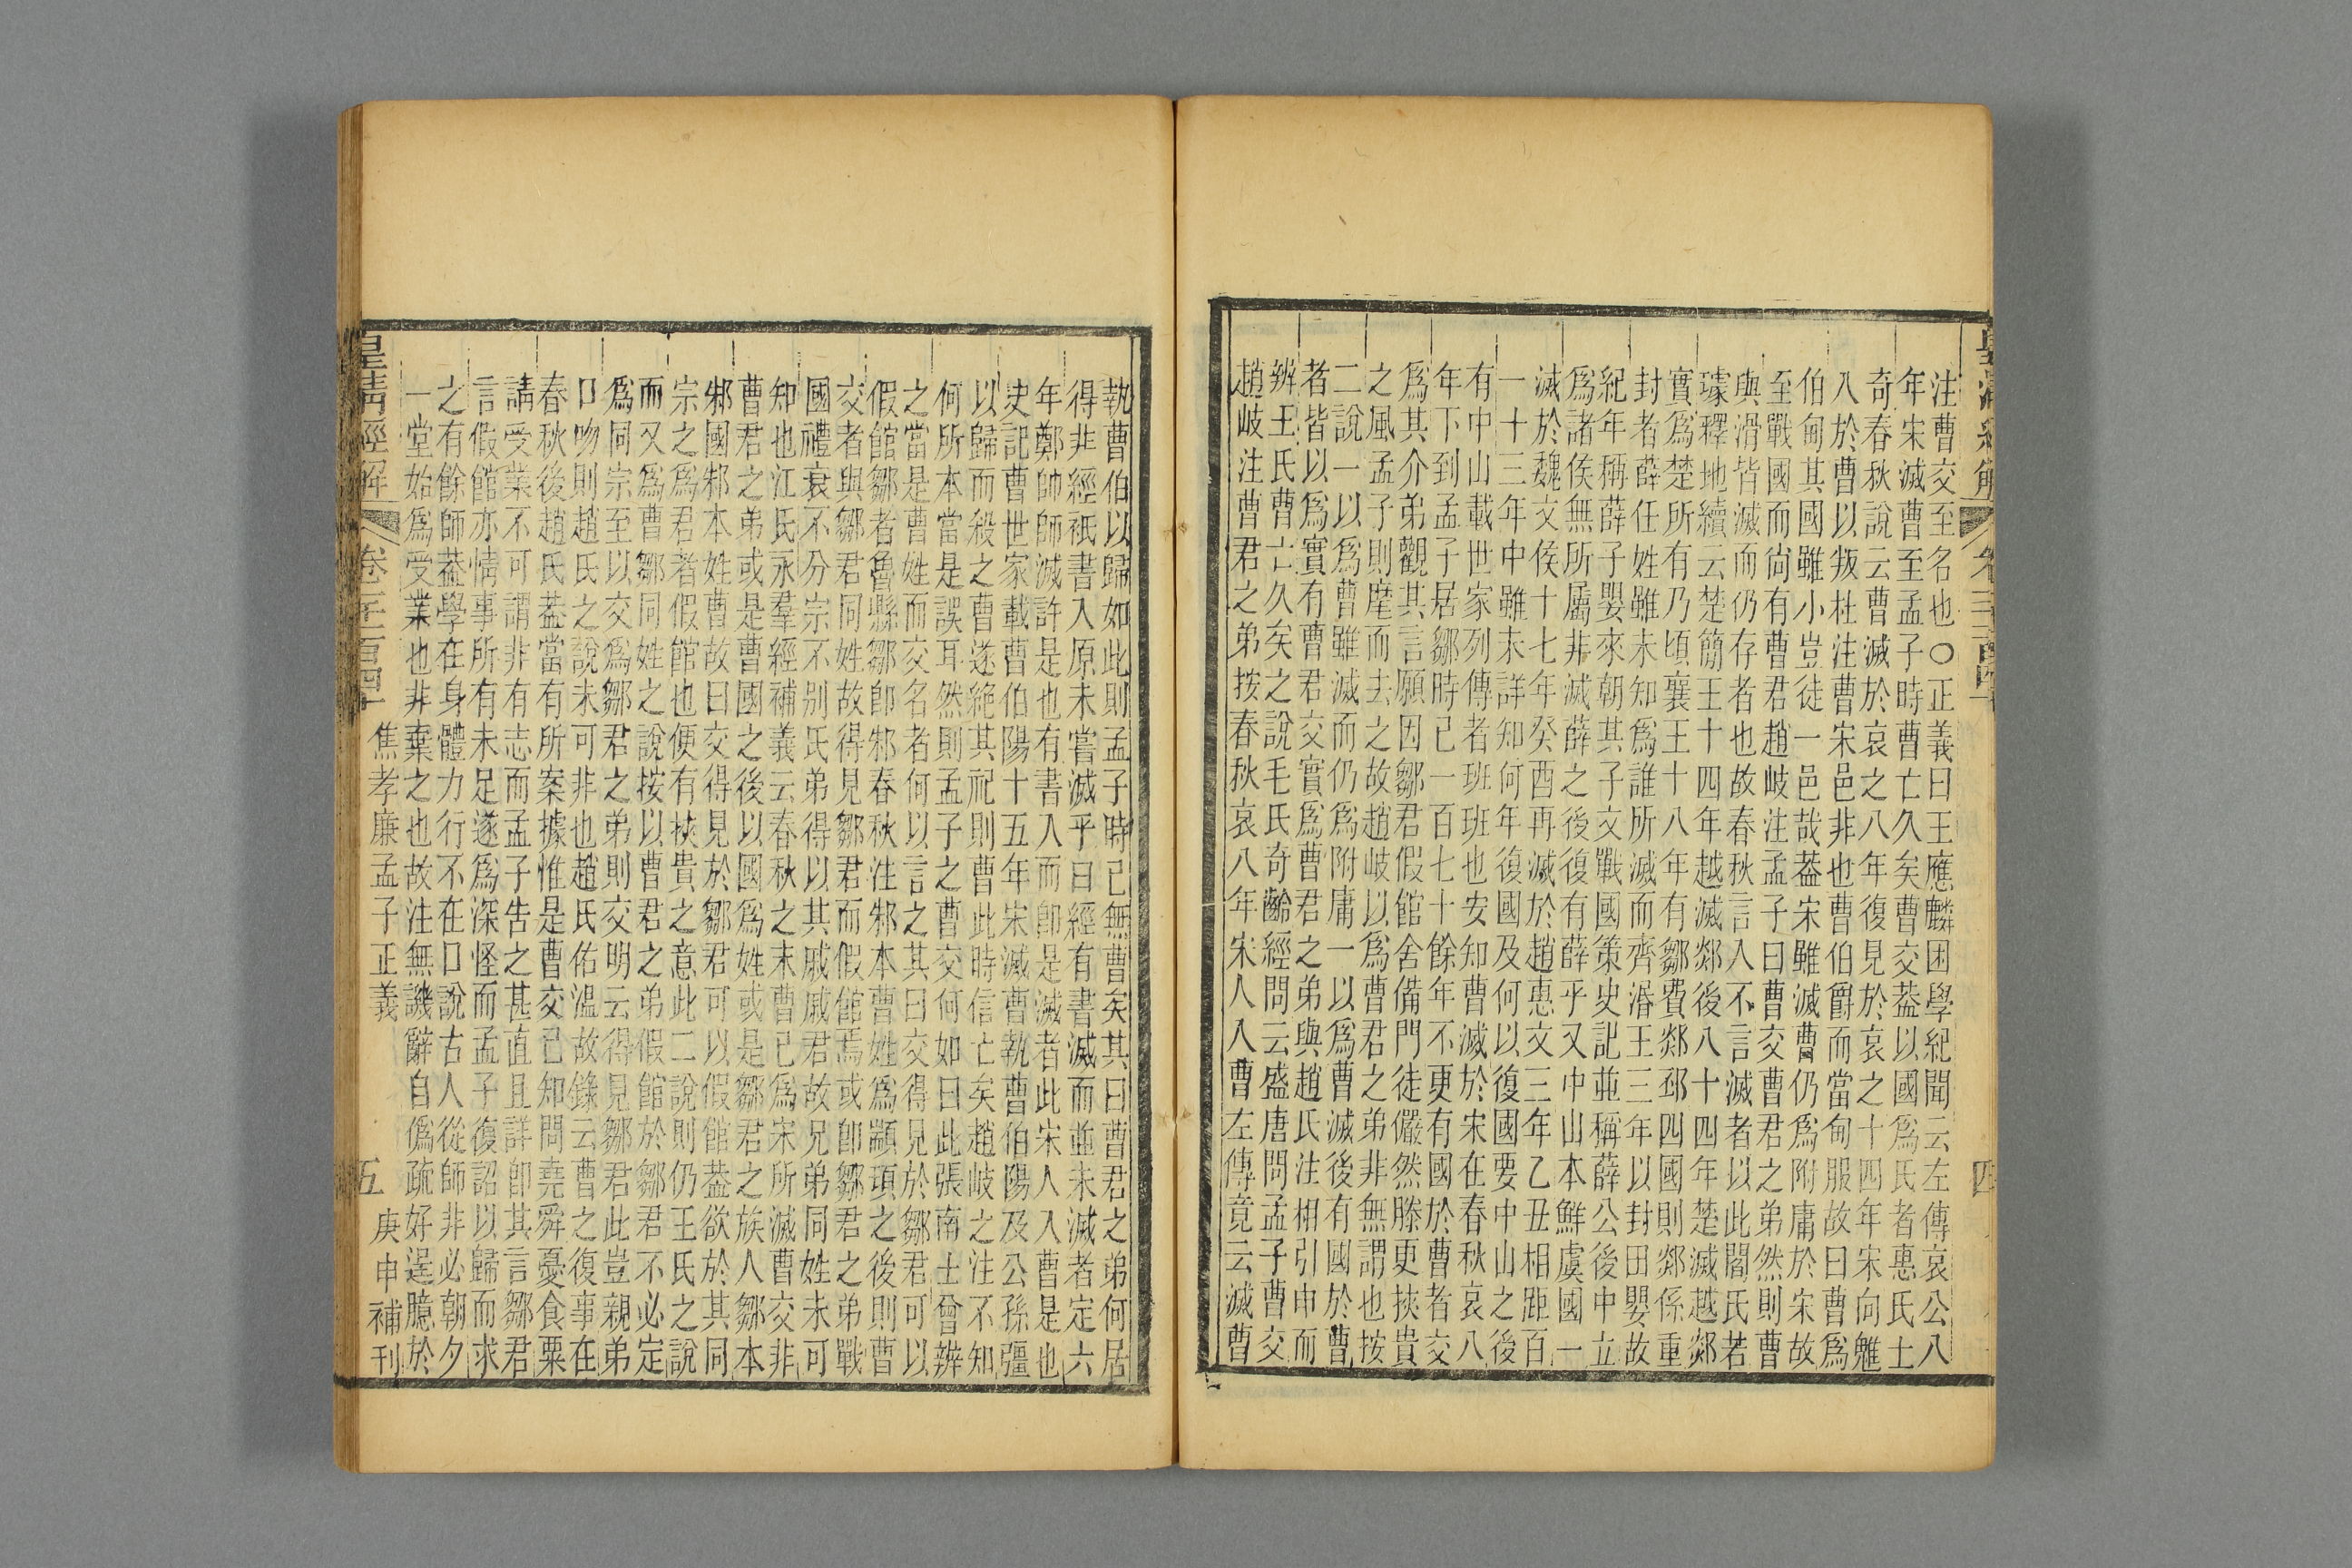 注曹交至名也〇正義曰王應麟困學紀聞云左傳哀公八
年宋滅曹至孟子時曹亡久矣曹交葢以國爲氏者惠氏士
奇春秋說云曹滅於哀之八年復見於哀之十四年宋向魋
入於曹以叛杜注曹宋邑非也曹伯爵而當甸服故曰曹爲
伯甸其國雖小豈徒一邑哉葢宋雖滅曹仍爲附庸於宋故
至戰國而尙有曹君趙岐注孟子曰曹交曹君之弟然則曹
與滑皆滅而仍存者也故春秋言入不言滅者以此閻氏若
璩釋地續云楚簡王十四年越滅郯後八十四年楚滅越郯
實爲楚所有乃頃襄王十八年有鄒費郯邳四國則郯係重
封者薛任姓雖未知爲誰所滅而齊湣王三年以封田嬰故
紀年稱薛子嬰來朝其子交戰國策史記並稱薛公後中立
爲諸侯無所屬非滅薛之後復有薛乎又中山本鮮虞國一
滅於魏文侯十七年癸酉再滅於趙惠文三年乙丑相距百
一十三年中雖未詳知何年復國及何以復國要中山之後
有中山載世家列傳者班班也安知曹滅於宋在春秋哀八
年下到孟子居鄒時已一百七十餘年不更有國於曹者交
爲其介弟觀其言願因鄒君假館舍備門徒儼然滕更挾貴
之風孟子則麾而去之故趙岐以爲曹君之弟非無謂也按
二說一以爲曹雖滅而仍爲附庸一以爲曹滅後有國於曹
者皆以爲實有曹君交實爲曹君之弟與趙氏注相引申而
辨王氏曹亡久矣之說毛氏奇齡經問云盛唐問孟子曹交
趙岐注曹君之弟按春秋哀八年宋人入曹左傳竟云滅曹
皇清經解 卷三百四十 四
執曹伯以歸如此則孟子時已無曹矣其曰曹君之弟何居
得非經衹書入原未嘗滅乎曰經有書滅而並未滅者定六
年鄭帥師滅許是也有書入而卽是滅者此宋人入曹是也
史記曹世家載曹伯陽十五年宋滅曹執曹伯陽及公孫彊
以歸而殺之曹遂絶其祀則曹此時信亡矣趙岐之注不知
何所本當是誤耳然則孟子之曹交何如曰此張南士曾辨
之當是曹姓而交名者何以言之其曰交得見於鄒君可以
假館鄒者魯縣鄒卽邾春秋注邾本曹姓爲顓頊之後則曹
交者與鄒君同姓故得見鄒君而假館焉或卽鄒君之弟戰
國禮衰不分宗不别氏弟得以其戚戚君故兄弟同姓未可
知也江氏永羣經補義云春秋之末曹已爲宋所滅曹交非
曹君之弟或是曹國之後以國爲姓或是鄒君之族人鄒本
邾國邾本姓曹故曰交得見於鄒君可以假館葢欲於其同
宗之爲君者假館也便有挾貴之意此二說則仍王氏之說
而又爲曹鄒同姓之說按以曹君之弟假館於鄒君不必定
爲同宗至以交爲鄒君之弟則交明云得見鄒君此豈親弟
口吻則趙氏之說未可非也趙氏佑溫故錄云曹之復事在
春秋後趙氏葢當有所案據惟是曹交已知問堯舜憂食粟
請受業不可謂非有志而孟子告之甚直且詳卽其言鄒君
言假館亦情事所有未足遂爲深怪而孟子復詔以歸而求
之有餘師葢學在身體力行不在口說古人從師非必朝夕
一堂始爲受業也非棄之也故注無譏辭自僞疏好逞臆於
皇清經解 卷三百四十 焦孝廉孟子正義 五 庚申補刊